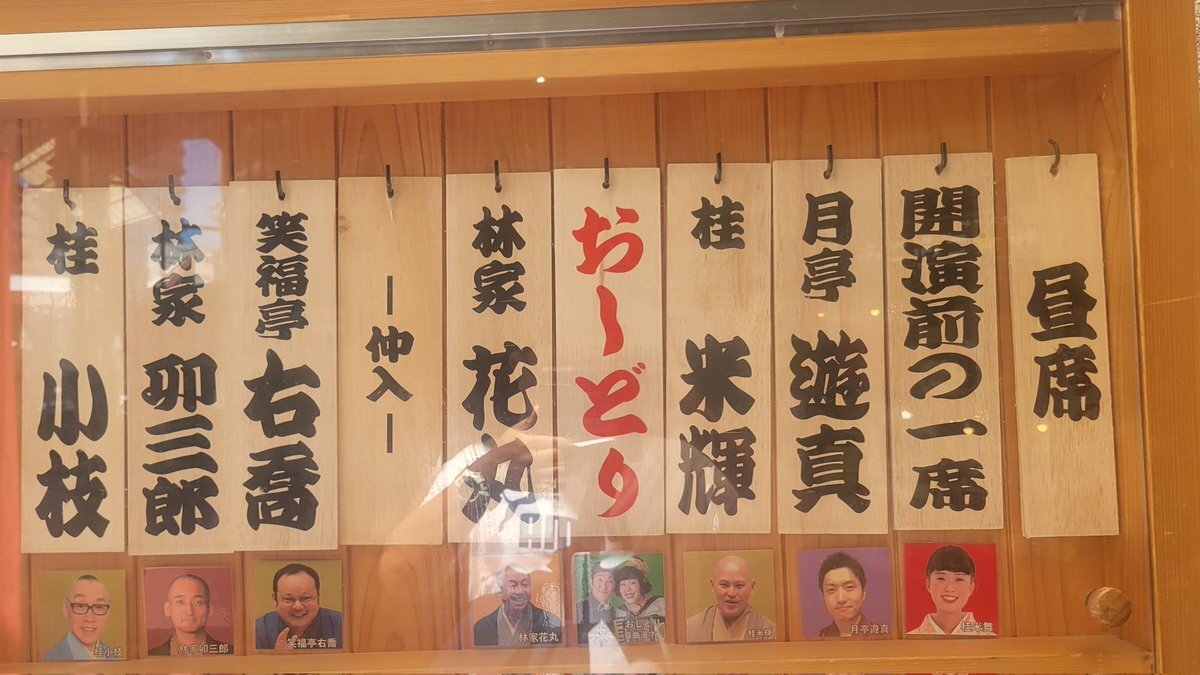 昼席
開演前の一席
月亭 遊真
桂 米輝
おしどり
林家 花丸
―仲入―
笑福亭 右喬
林家 卯三郎
桂 小枝
桂米舞
月亭遊真
桂米輝
おしどり
林家花丸
笑福亭右喬
林家卯三郎
桂小枝